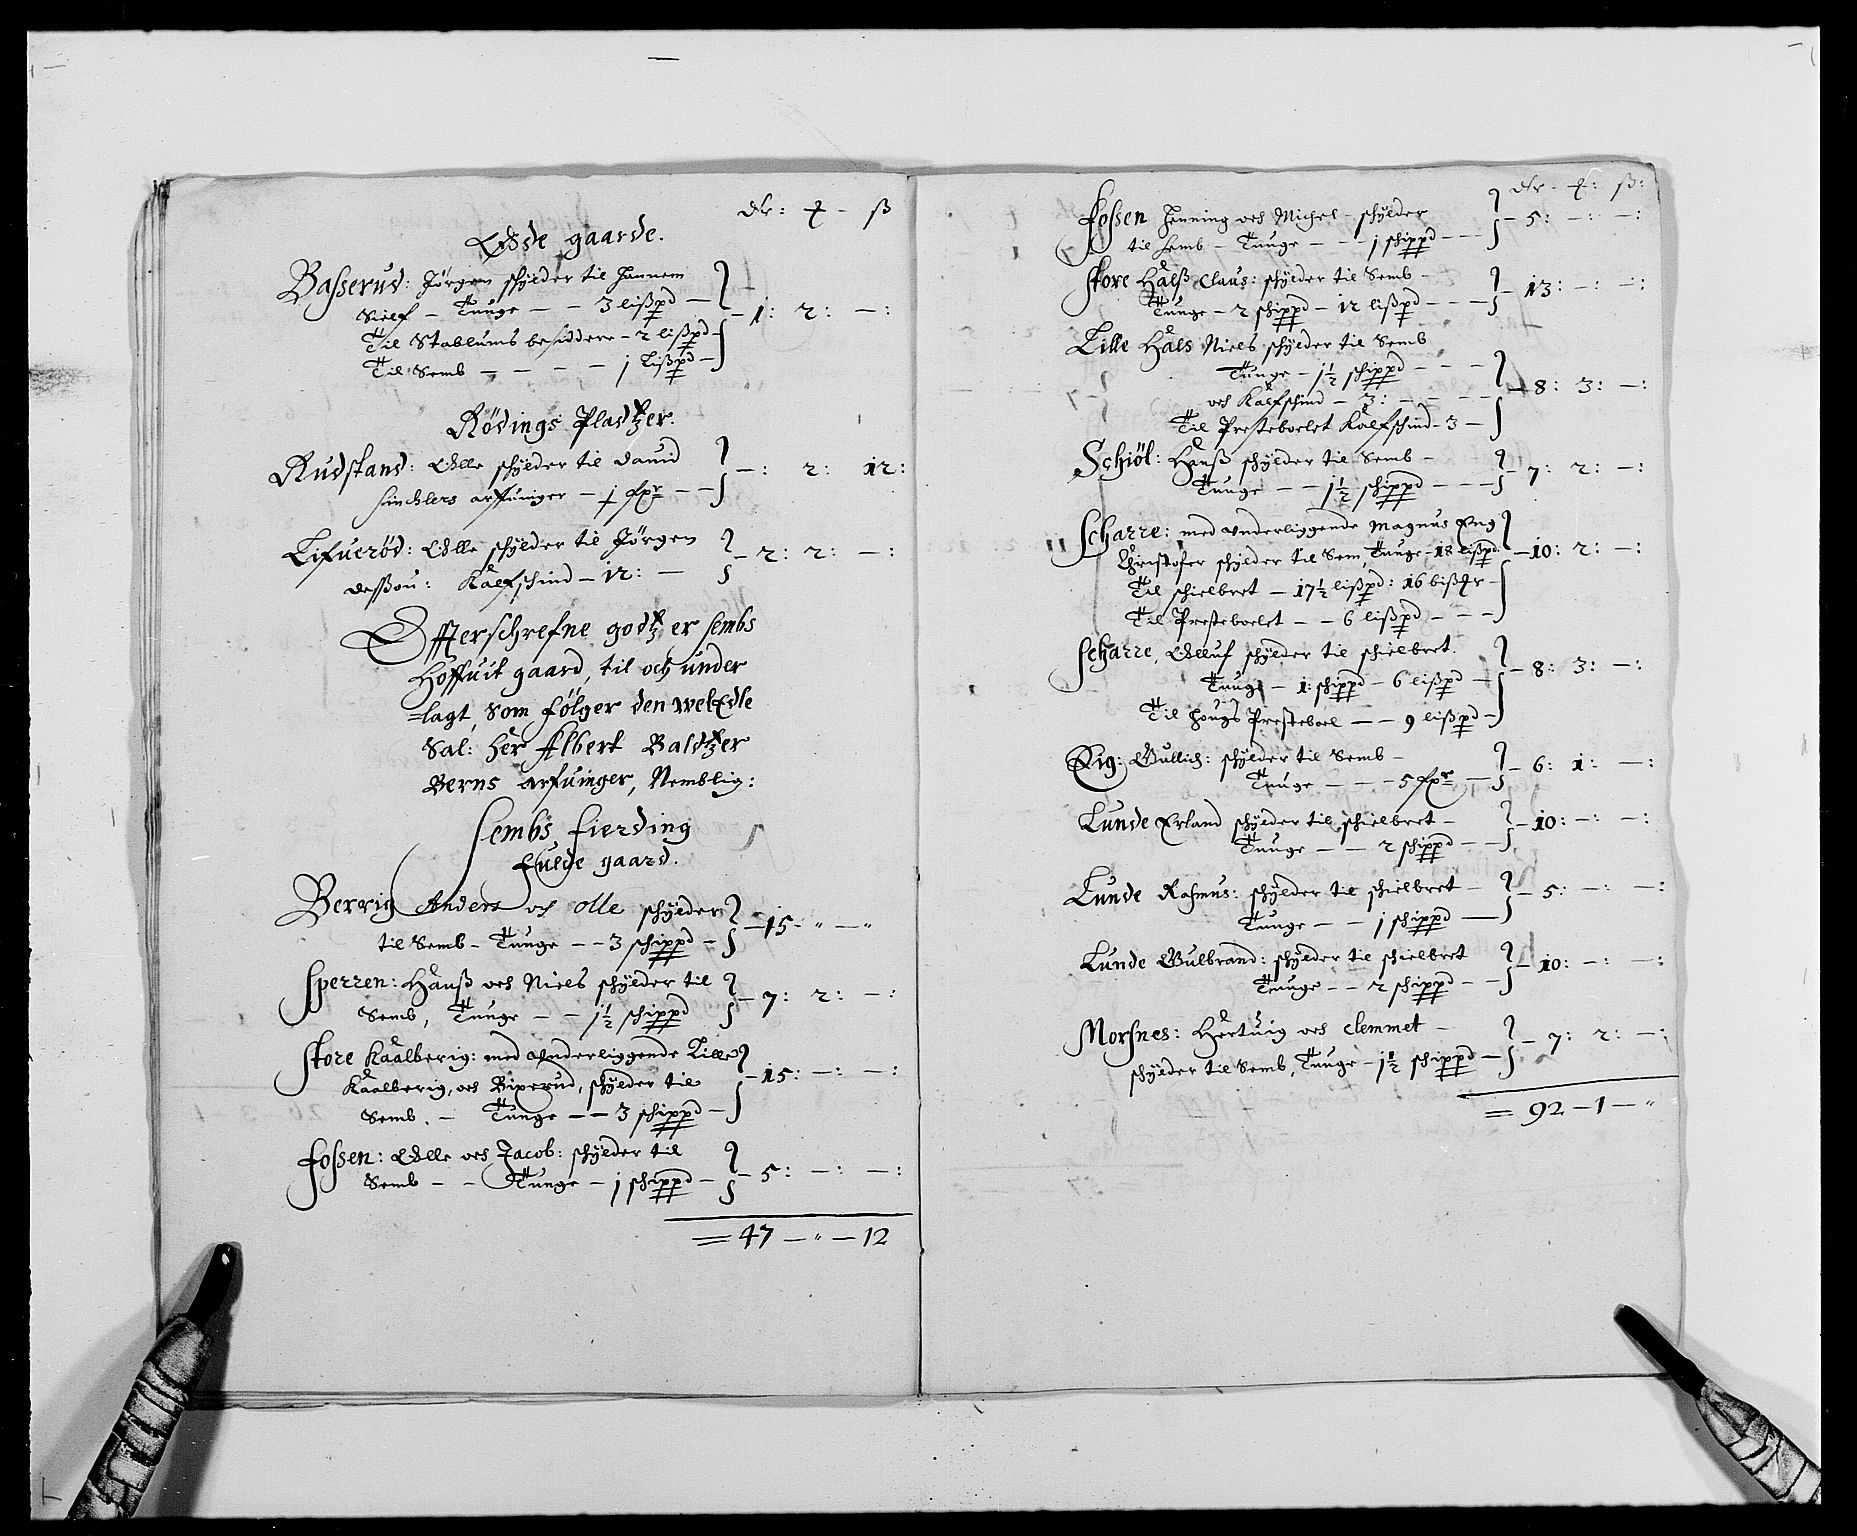 dlr: ꝉ - ß
Ødde gaarde.
Basserud: Jörgen schÿlder til hannem
Sielf - Tunge - - 3 lißpd -
Til Stablums besiddere - 2 lißpd - 1: 2: -:
Til Semb - - - - 1 Lißpd -
Rödings Pladtzer.
Rudstand: Olle schÿlder til Dauid - -: 2: 12:
Sincklers arfuinger - 1 fpr - -
Lifueröd: Olle schÿlder til Jörgen - 2: 2: -:
dessou: Kalfschind - 12: -
Effterschrefne godtz er Sembs
Hoffuit gaard, til och under
=lagt, Som fölger den welEdle
Sal: her Albert Baldtzer
Berns arfuinger, Nemblig:
Sembs fierding
Fulde gaard.
Berrig Anders och Olle schÿlder
til Semb - Tunge - - 3 schippd - - 15 - " - "
Sperren: Hanß och Niels schÿlder til
Semb, Tunge - - 1½ schippd - 7: 2: -:
Store Kaalberig: med Underliggende Lille
Kaalberig, och Biperud, schÿlder til - 15: -: -:
Semb. - Tunge - - 3 schippd -
Fossen: Olle och Jacob: schÿlder til
Semb - - Tunge - 1 schippd - - 5: -: -:
= 47 - " - 12
dlr - ꝉ: ß:
Fossen Henning och Michel - schÿlder - 5: -: -:
til Semb - Tunge - - - 1 schippd - - -
Store Halß Claus: schÿlder til Semb - - 13: -: -:
Tunge - 2 schippd - 12 lißpd - - -
Lille Hals Niels schÿlder til Semb
Tunge - 1½ schippd - - -
och Kalfschind - 3: - - - - - 8: 3: -:
Til Presteboelet Kalfschind - 3 -
Schiöl: Hanß schÿlder til Semb - - 7: 2: -:
Tunge - - 1½ schippd - - -
Scharre: med Underliggende Magnus Eng
Christofer schÿlder til Sem, Tunge - 18 lißpd - 10: 2: -:
Til schielbret - 17½ lißpd: 16 bißmr -
Til Presteboelet - - 6 lißpd - - -
Scharre, Olluf schÿlder til schielbret.
Tunge - 1: schippd - 6 lißpd - - 8: 3: -:
Til hougs Presteboel - - 9 lißpd -
Eig: Gullich: schÿlder til Semb - - 6: 1: -:
Tunge - - - 5 fpr -
Lunde Erland schÿlder til schielbret - - 10: -: -:
Tunge - - 2 schippd - -
Lunde Rasmus: schÿlder til schielbret - - 5: -: -:
Tunge - - 1 schippd -
Lunde Gulbrand: schÿlder til schielbret - 10: -: -:
Tunge - - 2 schippd - -
Morsnes: Hertuig och Clemmet - - 7: 2: -:
schÿlder til Semb, Tunge - 1½ schippd -
= 92 - 1 - "